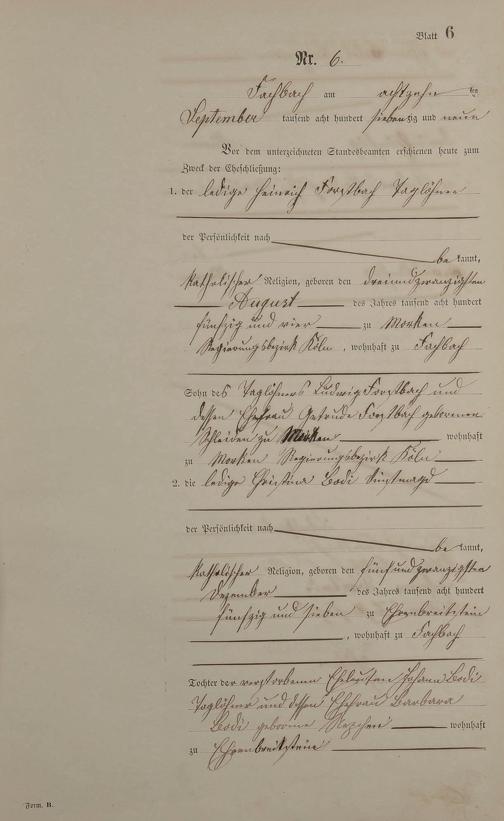 Blatt 6
Nr. 6.
Fachbach am achtzehn ten
September tausend acht hundert siebenzig und neun
Vor dem unterzeichneten Standesbeamten erschienen heute zum
Zweck der Eheschließung:
1. der ledige Heinrich Forstbach Taglöhner
der Persönlichkeit nach
be kannt,
katholischer Religion, geboren den dreiundzwanzigsten
August des Jahres tausend acht hundert
fünfzig und vier zu Morken
Regierungsbezirk Köln, wohnhaft zu Fachbach
Sohn des Taglöhners Ludwig Forstbach und
dessen Ehefrau Getrude Forstbach geborenen
Schleiden zu Morken wohnhaft
zu Morken Regierungsbezirk Köln
2. die ledige Christina Bodi Dienstmagd
der Persönlichkeit nach
be kannt,
katholischer Religion, geboren den fünfundzwanzigsten
Dezember des Jahres tausend acht hundert
fünfzig und sieben zu Ehrenbreitstein
, wohnhaft zu Fachbach
Tochter der verstorbenen Eheleuten Johann Bodi
Taglöhner und dessen Ehefrau Barbara
Bodi geborne wohnhaft
zu Ehrenbreitstein
Form. B.